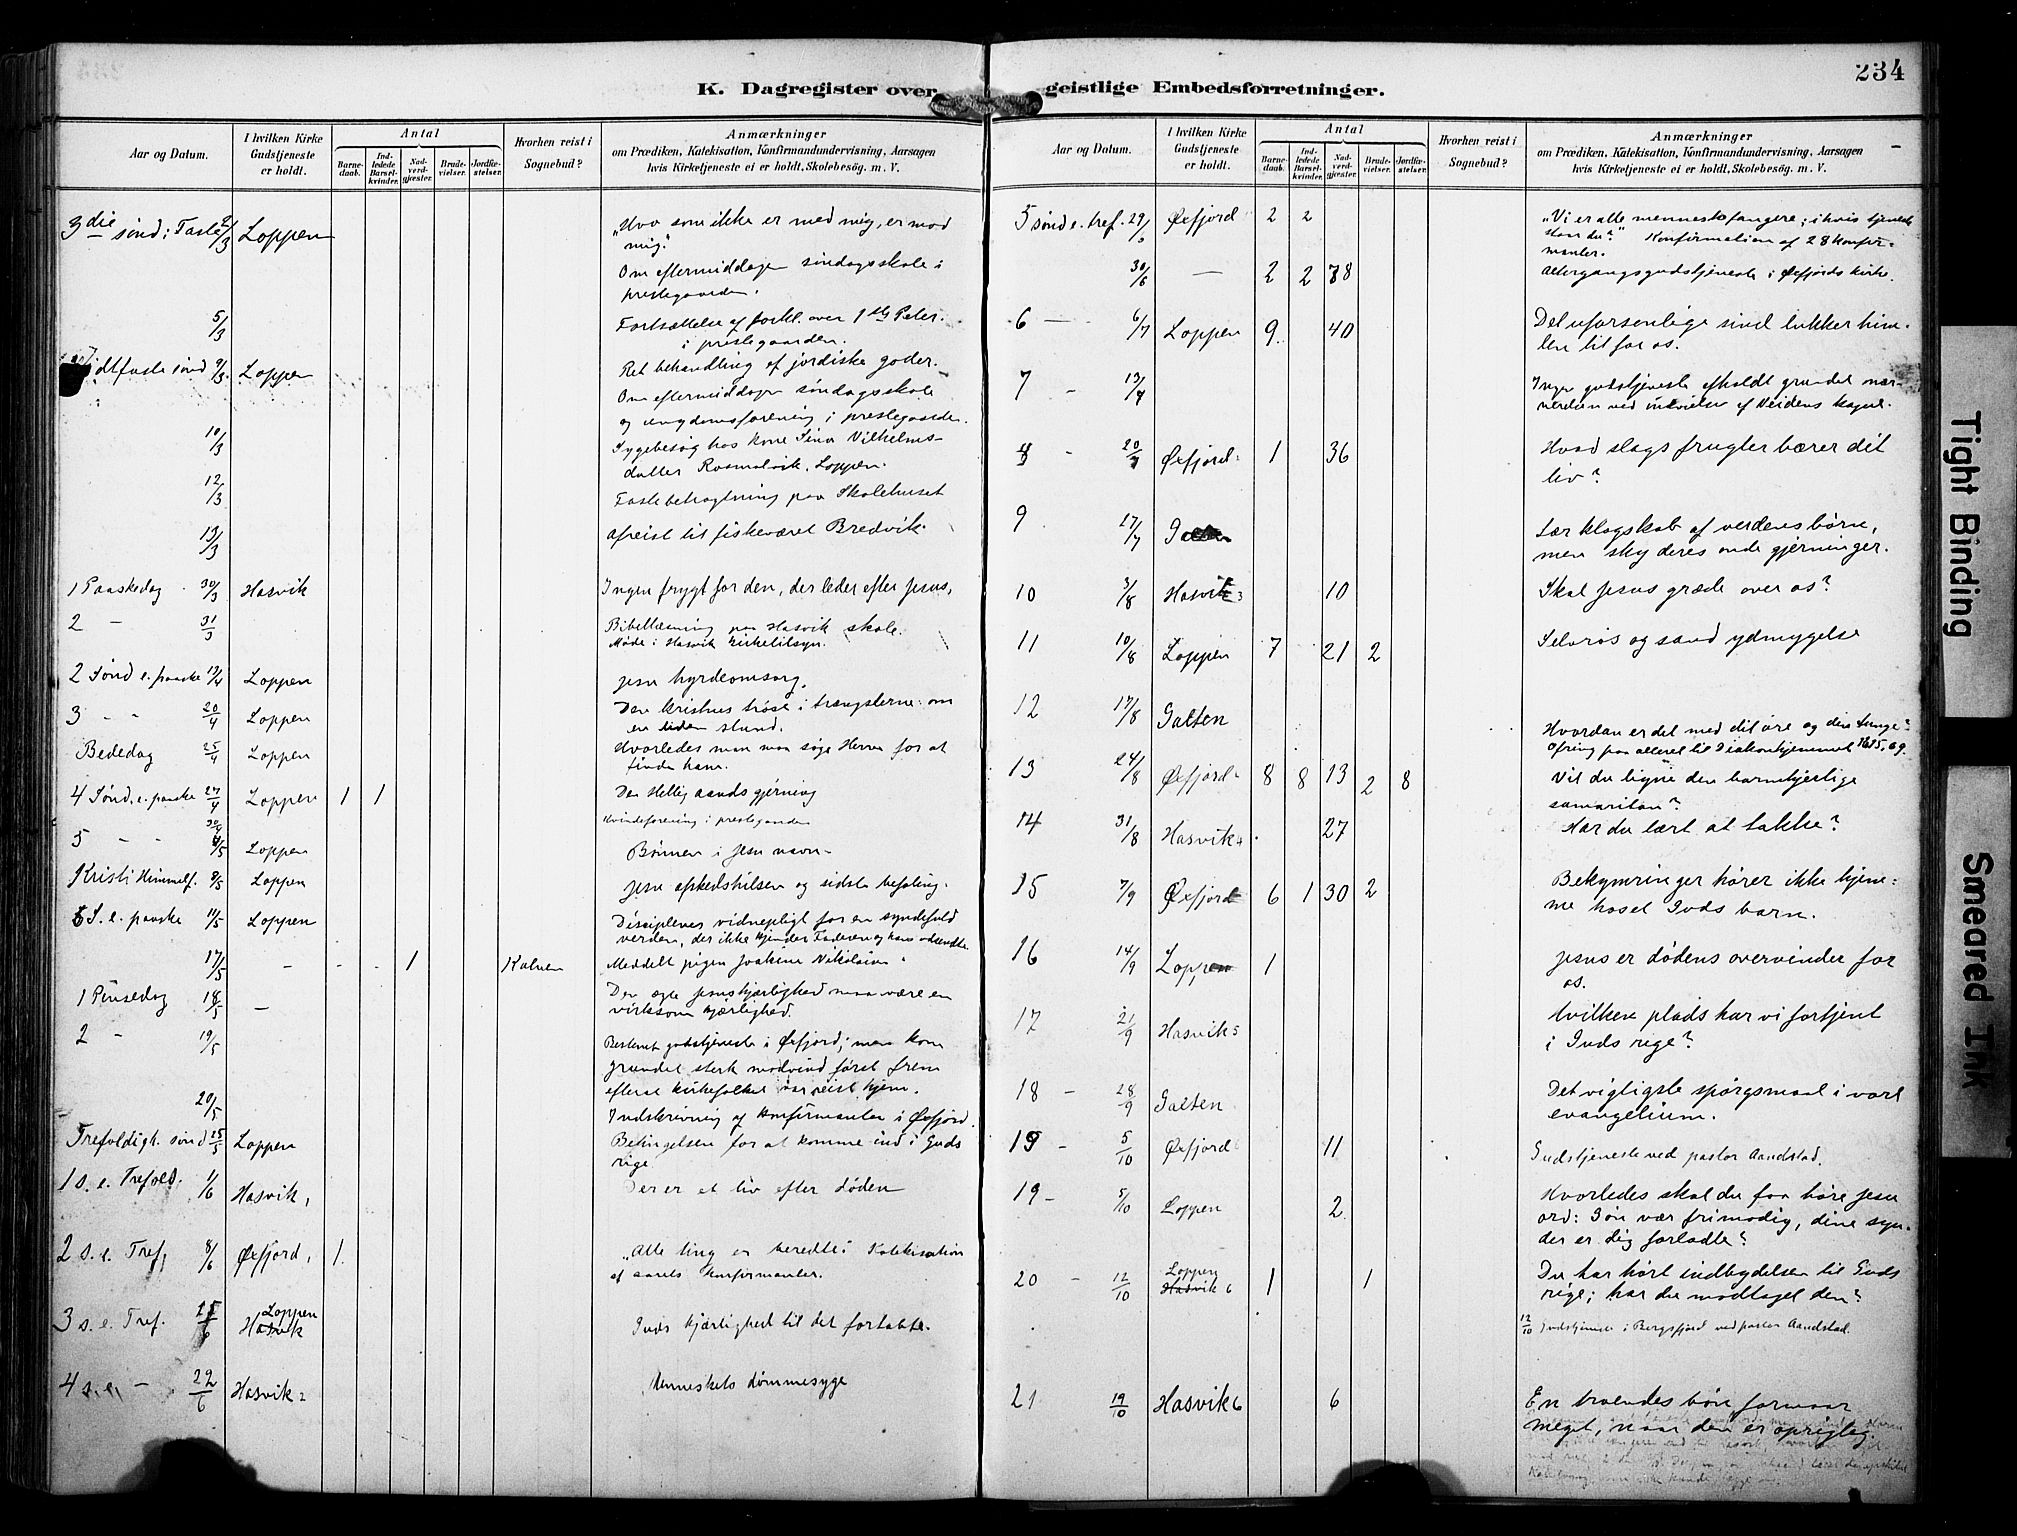 234
K. Dagregister over geistlige Embedsforretninger.
Aar og Datum.
I hvilken Kirke Gudstjeneste er holdt.
Antal
Barnedaab.
Indledede Barselkvinder.
Nadverdgjæster.
Brudevielser.
Jordfæstelser.
Hvorhen reist i Sognebud?
Anmærkninger
om Prædiken, Katekisation, Konfirmandundervisning, Aarsagen
hvis Kirketjeneste ei er holdt, Skolebesøg. m. V.
3die sønd i Faste 2/3 Loppen "Hvo som ikke er med mig, er mod
mig."
Om eftermiddagen søndagsskole i
prestegaarden.
5/3 Fortsættelse af forkl. over 1ste Peter.
i prestegaarden.
Midtfaste sønd 9/3. Loppen Ret behandling af jordiske goder.
Om eftermiddagen søndagsskole
og ungdomsforening i prestegaarden.
10/3 Sygebesøg hos kone Sina Vilhelms-
datter Loppen.
12/3 Fastebetragtning paa Skolehuset
13/3 Afreist til fiskeværet Bredvik.
1 Paaskedag 30/3 Hasvik Ingen frygt for den, der leder efter Jesus,
2 - 31/3 Bibellæsning paa Hasvik skole.
Møde i Hasvik kirketilsyn.
2 Sønd e. paaske 13/4 Loppen Jesu hyrdeomsorg.
3 - - 20/4 Loppen Den kristnes trøst i trængslerne: om
en liden stund.
Bededag 25/4 Loppen Hvorledes man maa søge Herren for at
finde ham.
4 Sønd. e. paaske 27/4 Loppen 1 1 Den Hellig aands gjerning
30/4 Kvindeforening i prestegaarden
5 - - 4/5 Loppen Bønnen i Jesu navn-
Kristi Himmelf. 8/5 Loppen Jesu afskedshilsen og sidste befaling.
6 S. e. paaske 11/5 Loppen Disciplenes vidnepligt for en syndefuld
verden, der ikke kjender Faderen og hans udsendte.
17/5 - - - - 1 Kalven Meddelt pigen Joakine Nikolaisen
1 Pinsedag 18/5 - Den ægte Jesuskjærlighed maa være en
virksom kjærlighed.
2 - 19/5 Bestemt gudstjeneste i Øxfjord; men kom
grundet sterk modvind først frem
efterat kirkefolket var reist hjem.
20/5 Indskrivning af konfirmanter i Øxfjord.
Trefoldigh. sønd 25/5 Loppen Betingelsen for at komme ind i Guds
rige
1 s. e. Trefold. 1/6 Hasvik 1 Der er et liv efter døden
2 s. e. Tref. 8/6 Øxfjord 1 1. "Alle ting er beredte". Katekisation
af aarets konfirmanter.
3 s. e. Tref. 15/6 Loppen Hasvik Guds kjærlighed til det fortabte.
4 s. e. - 22/6 Hasvik 2 Menneskets dømmesyge
Aar og Datum.
I hvilken Kirke Gudstjeneste er holdt.
Antal
Barnedaab.
Indledede Barselkvinder.
Nadverdgjæster.
Brudevielser.
Jordfæstelser.
Hvorhen reist i Sognebud?
Anmærkninger
om Prædiken, Katekisation, Konfirmandundervisning, Aarsagen
hvis Kirketjeneste ei er holdt, Skolebesøg. m. V.
5 sønd e. tref. 29/6 Øxfjord 2 2 "Vi er alle menneskefangere; i hvis tjeneste
staar du?" Konfirmation af 28 konfir-
manter.
30/6 - 2 2 78 Altergangsgudstjeneste i Øxfjords kirke.
6 - 6/7 Loppen 9. 40 Det uforsonlige sind lukker him-
len til for os.
7 - 13/7 Ingen gudstjeneste afholdt grundet nær-
værelse ved indvielse af kapel.
8 - 20/7 Øxfjord 1 36 Hvad slags frugter bærer dit
liv?
9 27/7 Lær klogskab af verdens børn,
men sky deres onde gjerninger.
10 3/8 Hasvik 3 10 Skal Jesus græde over os?
11 10/8 Loppen 7 21 2 Selvros og sand ydmygelse
12 17/8 Galten Hvordan er det med dit øre og din tunge?
Ofring paa alteret til Diakonhjemmet
13 24/8 Øxfjord 8 8 13 2 8 Vil du ligne den barmhjertige
samaritan?
14 31/8 Hasvik 4 27 Har du lært at takke?
15 7/9 Øxfjord 6 1 30 2 Bekymringer hører ikke hjem-
me hoset Guds barn.
16 14/9 Loppen 1 Jesus er dødens overvinder for
os.
17 21/9 Hasvik 5 Hvilken plads har vi fortjent
i Guds rige?
18 - 28/9 Galten Det vigtigste spørgsmaal i vort
evangelium.
19 - 5/10 Øxfjord 11 Gudstjeneste ved pastor Aandstad.
19 - 5/10 Loppen 2 Hvorledes skal du faa høre Jesu
ord: Søn vær frimodig, dine syn-
der er dig forladte?
20 - 12/10 Loppen Hasvik 6 1 1 Du har hørt indbydelsen til Guds
rige; har du modtaget den?
12/10 Gudstjeneste i Bergsfjord ved pastor Aandstad.
21 19/10 Hasvik 6 6 En troendes bøn formaar
meget, naar den er oprigtig.
Tight Binding
Smeared Ink